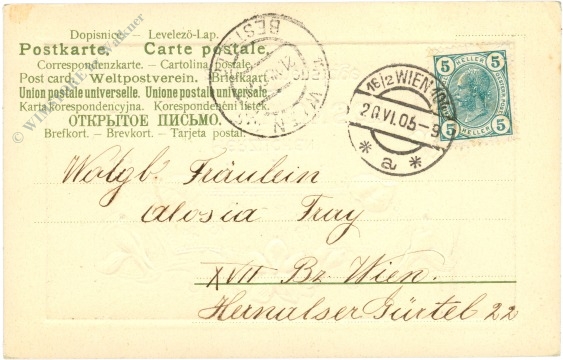 Dopisnice. Levelező-Lap.
Postkarte. Carte postale.
Correspondenzkarte. – Cartolina postale.
Post card. Weltpostverein. Briefkaart
Union postale universelle. Unione postale universale.
Karta korespondencyjna. Korespondenční listek.
ОТКРЫТОЕ ПИСЬМО.
Brefkort. – Brevkort. – Tarjeta postal.
WIEN
BEST
5 5
HELLER
5 HELLER 5
16/2 WIEN
20.VI.05-9
* a *
Walgb. Fräulein
Alosia Fray
XVII Bz. Wien.
Hernalser Gürtel 22